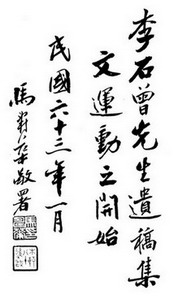 李石曾先生遺稿集
文運動之開始
民國六十三年一月
馬彛敬署